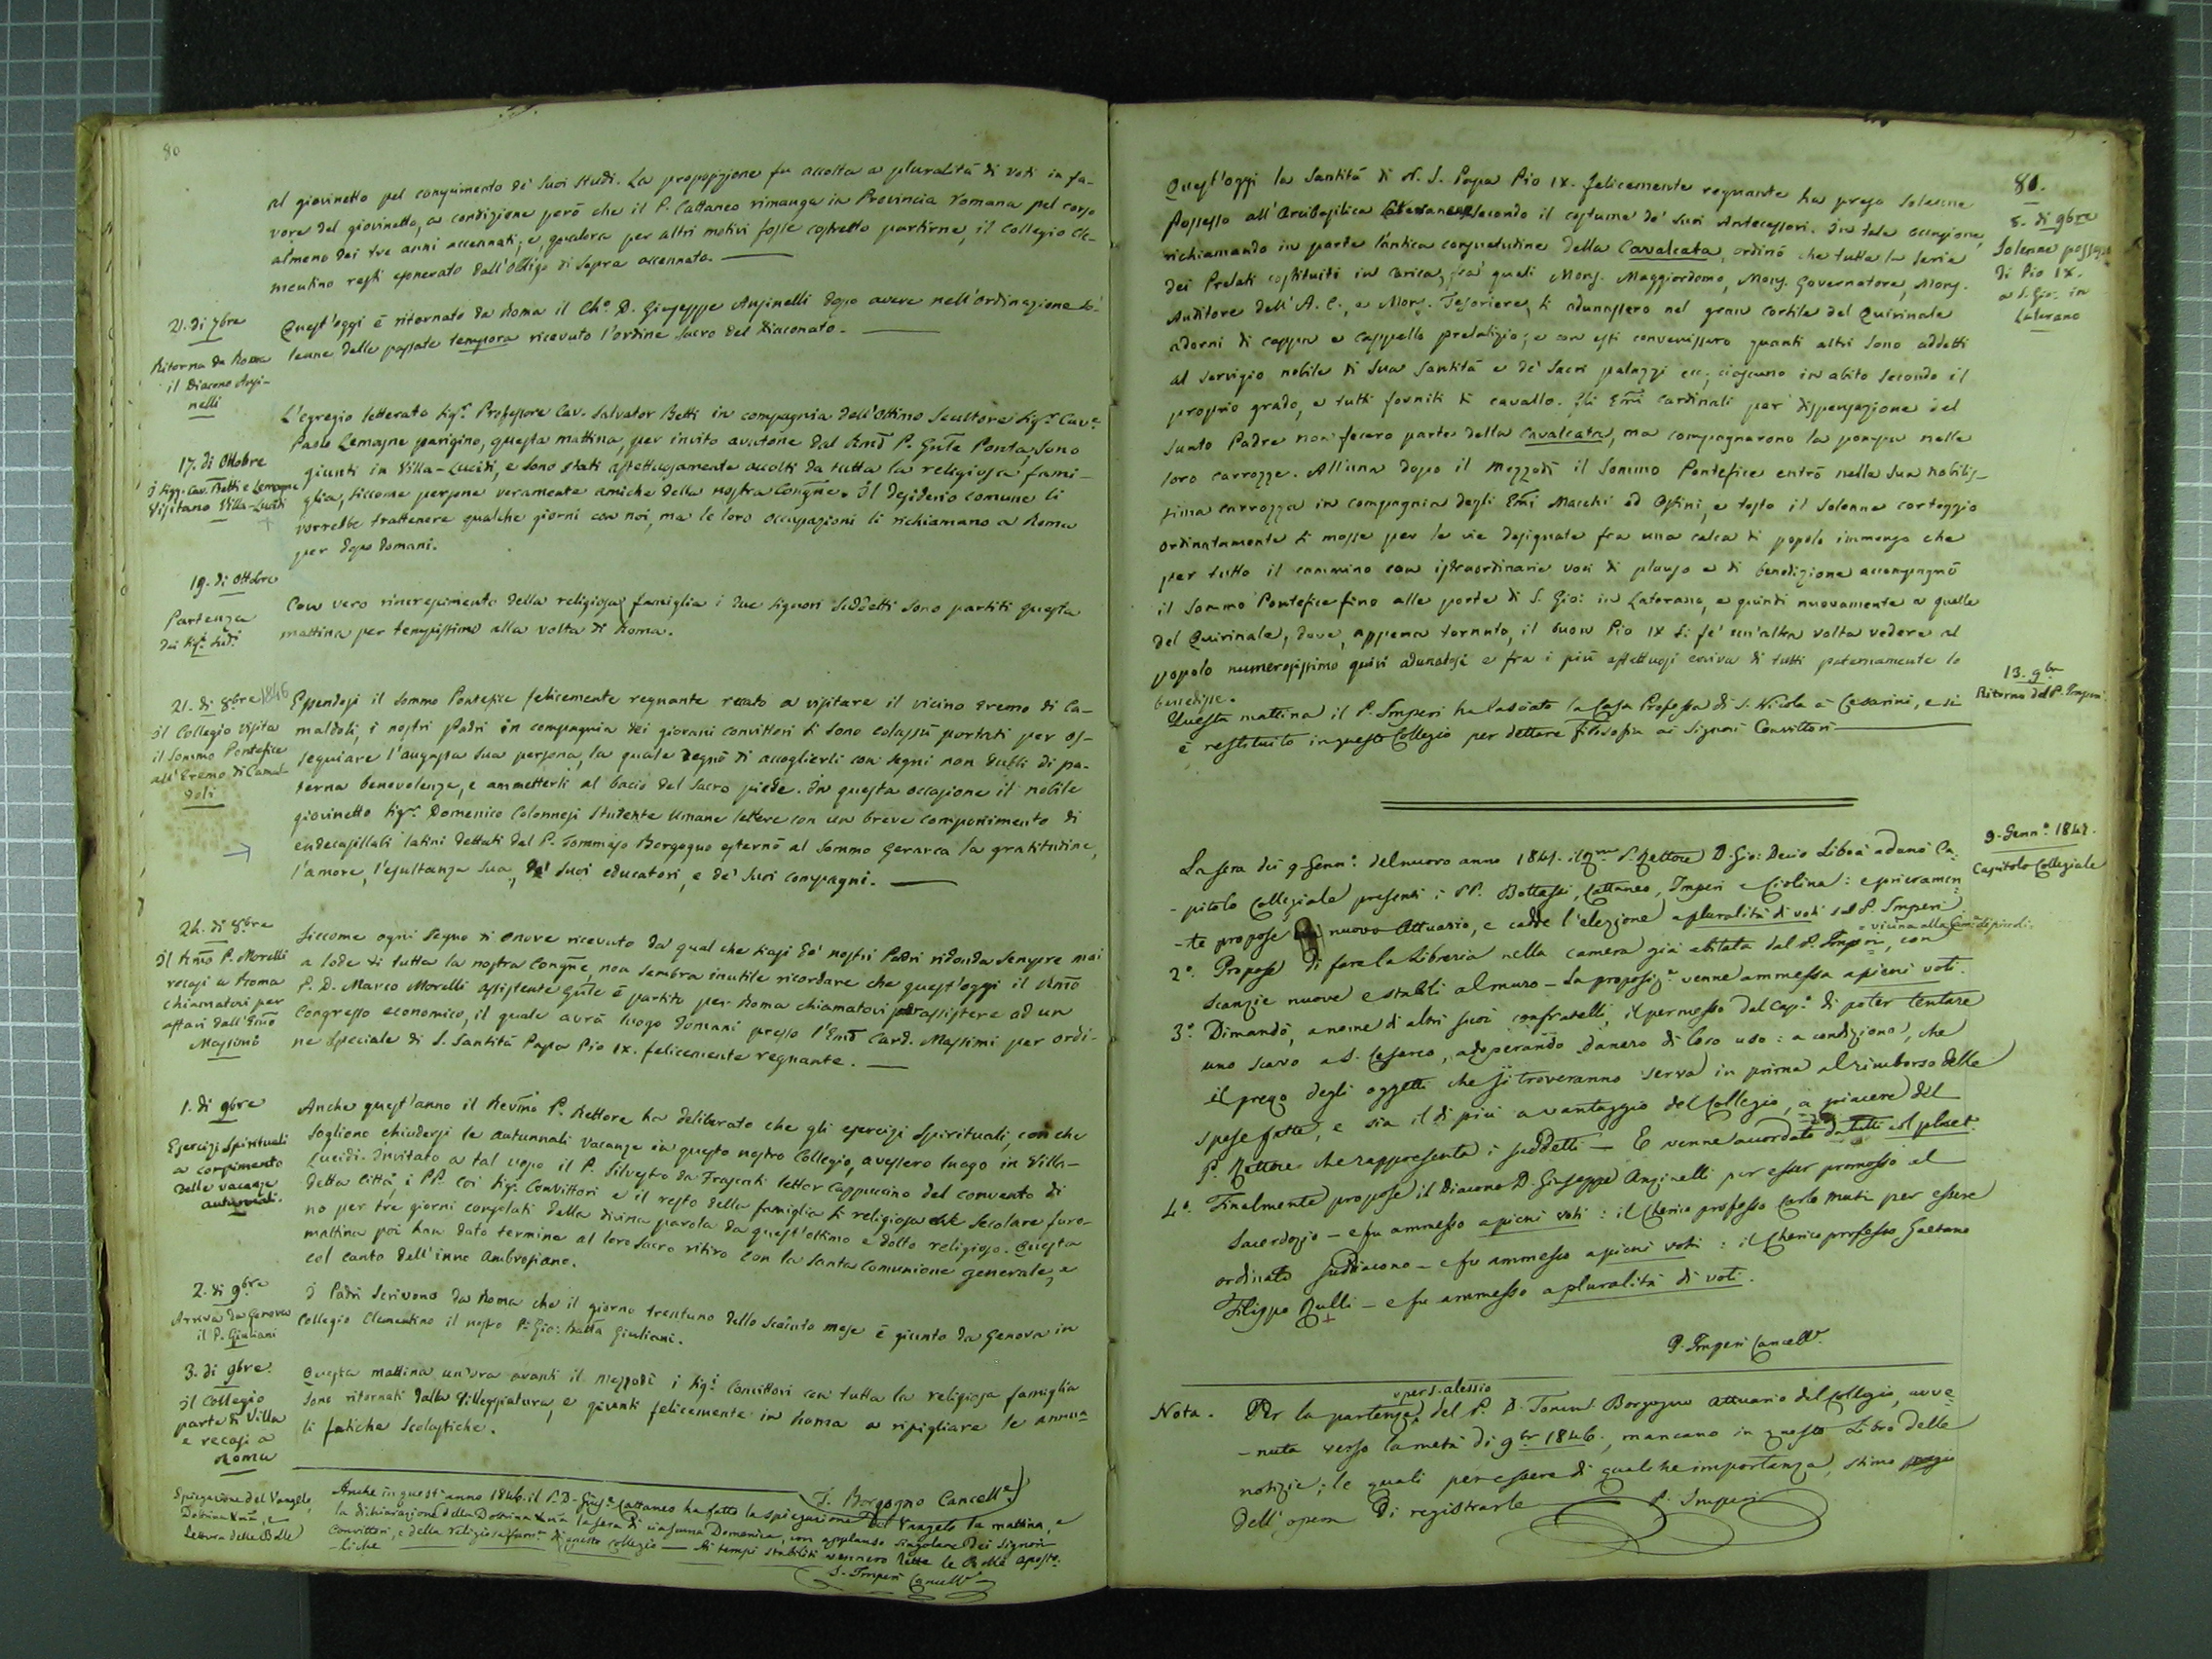 80
al giovinetto pel conseguimento de' suoi studi. La proposizione fu accolta a pluralità di voti in fa-
vore del giovinetto, a condizione però che il P. Cattaneo rimanga in Provincia romana pel corso
almeno dei tre anni accennati; e, qualora per altri motivi fosse costretto partirne, il Collegio Cle-
mentino resti esonerato dall'obbligo di sopra accennato.
21. di 7bre
Ritorna da Roma
il Diacono Ansi-
nelli
Quest'oggi è ritornato da Roma il Ch.o D. Giuseppe Ansinelli dopo avere nell'ordinazione so-
lenne delle passate tempora ricevuto l'ordine sacro del Diaconato.
17. di Ottobre
I Sigg. Cav. Betti e Lemoyne
Visitano Villa-Lucidi
L'egregio letterato Sigr. Professore Cav. Salvator Betti in compagnia dell'ottimo Scultore Sigr. Cave.
Paolo Lemoyne parigino, questa mattina, per invito avutone dal Rmo P. Gnle Ponta, sono
giunti in Villa-Lucidi, e sono stati affettuosamente accolti da tutta la religiosa fami-
glia, siccome persone veramente amiche della nostra Congne. Il desiderio comune li
vorrebbe trattenere qualche giorni con noi, ma le loro occupazioni li richiamano a Roma
per dopo domani.
19. di Ottobre
Partenza
dei Sigi. sudi.
Con vero rincrescimento della religiosa famiglia i due signori suddetti sono partiti questa
mattina per tempissimo alla volta di Roma.
21. di 8bre 1846
Il Collegio visita
il Sommo Pontefice
all'Eremo di Camal-
doli
Essendosi il Sommo Pontefice felicemente regnante recato a visitare il vicino Eremo di Ca-
maldoli, i nostri Padri in compagnia dei giovani convittori si sono colassù portati per os-
sequiare l'augusta sua persona, la quale degnò di accoglierli con segni non dubbi di pa-
terna benevolenza, e ammetterli al bacio del sacro piede. In questa occasione il nobile
giovinetto Sigr. Domenico Colonnesi studente umane lettere con un breve componimento di
endecasillabi latini dettati dal P. Tommaso Borgogno esternò al Sommo Gerarca la gratitudine,
l'amore, l'esultanza sua, de' suoi educatori, e de' suoi compagni.
24. di 8bre
Il Rmo P. Morelli
recasi a Roma
chiamatovi per
affari dall'Emo
Massimi
Siccome ogni segno di onore ricevuto da qual che siasi de' nostri Padri ridonda sempre mai
a lode di tutta la nostra Congne, non sembra inutile ricordare che quest'oggi il Rmo
P. D. Marco Morelli Assistente Gnle è partito per Roma chiamatovi per assistere ad un
Congresso economico, il quale avrà luogo domani presso l'Emo Card. Massimi per ordi-
ne speciale di S. Santità Papa Pio IX. felicemente regnante.
1. di 9bre
Esercizi Spirituali
a compimento
delle vacanze
autunnali.
Anche quest'anno il Revmo P. Rettore ha deliberato che gli esercizi spirituali, con che
sogliono chiudersi le autunnali vacanze in questo nostro Collegio, avessero luogo in Villa-
Lucidi. Invitato a tal uopo il P. Silvestro da Frascati lettor Cappuccino del convento di
detta Città, i PP. coi Sigi. Convittori e il resto della famiglia sì religiosa che secolare furo-
no per tre giorni consolati della divina parola da quest'ottimo e dotto religioso. Questa
mattina poi han dato termine al loro sacro ritiro con la santa Comunione generale, e
col canto dell'inno Ambrosiano.
2. di 9bre
Arriva da Genova
il P. Giuliani
I Padri scrivono da Roma che il giorno trentuno dello scaduto mese è giunto da Genova in
Collegio Clementino il nostro P. Gio: Batta Giuliani.
3. di 9bre.
Il Collegio
parte di Villa
e recasi a
Roma
Questa mattina un'ora avanti il mezzodì i Sigi. Convittori con tutta la religiosa famiglia
sono ritornati dalla villeggiatura, e giunti felicemente in Roma a ripigliare le annua
li fatiche scolastiche.
T. Borgogno Cancelle.
Spiegazione del Vangelo,
Dottrina Xna, e
Lettura delle Bolle
Anche in quest'anno 1846. il P. D. Gius.e Cattaneo ha fatto la spiegazione del Vangelo la mattina, e
la dichiarazione della Dottrina Xna la sera di ciascuna Domenica, con applauso singolare dei Signori
Convittori, e della religiosa fami.a di questo Collegio — Ai tempi stabiliti vennero lette le Bolle Aposto-
liche
P. Imperi Cancell.e
81.
5. di 9bre
Solenne possesso
di Pio IX.
a S. Gio: in
Laterano
Quest'oggi la Santità di N. S. Papa Pio IX. felicemente regnante ha preso solenne
Possesso all'Arcibasilica Lateranense secondo il costume de' suoi Antecessori. In tale occasione,
richiamando in parte l'antica consuetudine della Cavalcata, ordinò che tutta la serie
dei Prelati costituiti in carica, fra' quali Mons. Maggiordomo, Mons. Governatore, Mons.
Auditore dell'A. C., e Mons. Tesoriere, si adunassero nel gran cortile del Quirinale
adorni di cappa e cappello prelatizio; e con essi convenissero quanti altri sono addetti
al servigio nobile di Sua Santità e de' sacri palazzi ec; ciascuno in abito secondo il
proprio grado, e tutti forniti di cavallo. Gli Emi Cardinali per dispensazione del
Santo Padre non fecero parte della Cavalcata, ma compagnarono la pompa nelle
loro carrozze. All'una dopo il mezzodì il Sommo Pontefice entrò nella sua nobilis-
sima carrozza in compagnia degli Emi Macchi ed Ostini, e tosto il solenne corteggio
ordinatamente si mosse per le vie designate fra una calca di popolo immenso che
per tutto il cammino con istraordinarie voci di plauso e di benedizione accompagnò
il Sommo Pontefice fino alle porte di S. Gio: in Laterano, e quindi nuovamente a quelle
del Quirinale, dove, appena tornato, il buon Pio IX si fe' un'altra volta vedere al
popolo numerosissimo quivi adunatosi e fra i più affettuosi evviva di tutti paternamente lo
benedisse.
13. 9br
Ritorno del P. Imperi
Questa mattina il P. Imperi ha lasciato la Casa Professa di S. Nicola a' Cesarini, e si
è restituito in questo Collegio per dettare Filosofia ai Signori Convittori
9. Genn.o 1847.
Capitolo Collegiale
La sera dei 9 Genn.o del nuovo anno 1847. il Rmo P. Rettore D. Gio: Decio Libois adunò Ca-
- pitolo Collegiale presenti i PP. Bottassi, Cattaneo, Imperi e Ciolina: e prieramen
- te propose nuovo Attuario, e cadde l'elezione a pluralità di voti sul P. Imperi
= vicina alla Cam.a de' piccoli.
2.o Propose di fare la Libreria nella camera già abitata dal P. Imperi, con
scanzie nuove e stabili al muro — La proposiz.e venne ammessa a pieni voti.
3.o Dimandò, a nome di altri suoi confratelli, il permesso dal Cap.o di poter tentare
uno scavo a S. Cesareo, adoperando danaro di loro uso: a condizione, che
il prezzo degli oggetti che si troveranno serva in prima al rimborso delle
spese fatte, e sia il di più a vantaggio del Collegio, a piacere del
P. Rettore che rappresenta i suddetti — E venne accordato da tutti col placet.
4.o Finalmente propose il Diacono D. Giuseppe Anzinelli per esser promosso al
Sacerdozio — e fu ammesso a pieni voti: il Cherico professo Carlo Muti per essere
ordinato Suddiacono — e fu ammesso a pieni voti: il Cherico professo Gaetano
Filippo Rulli — e fu ammesso a pluralità di voti.
P. Imperi Cancell.e
Nota. Per la partenza per S. Alessio del P. D. Tomm.o Borgogno Attuario del Collegio, avve-
- nuta verso la metà di 9br 1846., mancano in questo Libro delle
notizie; le quali per essere di qualche importanza, stimo pregio
dell'opera di registrarle
P. Imperi